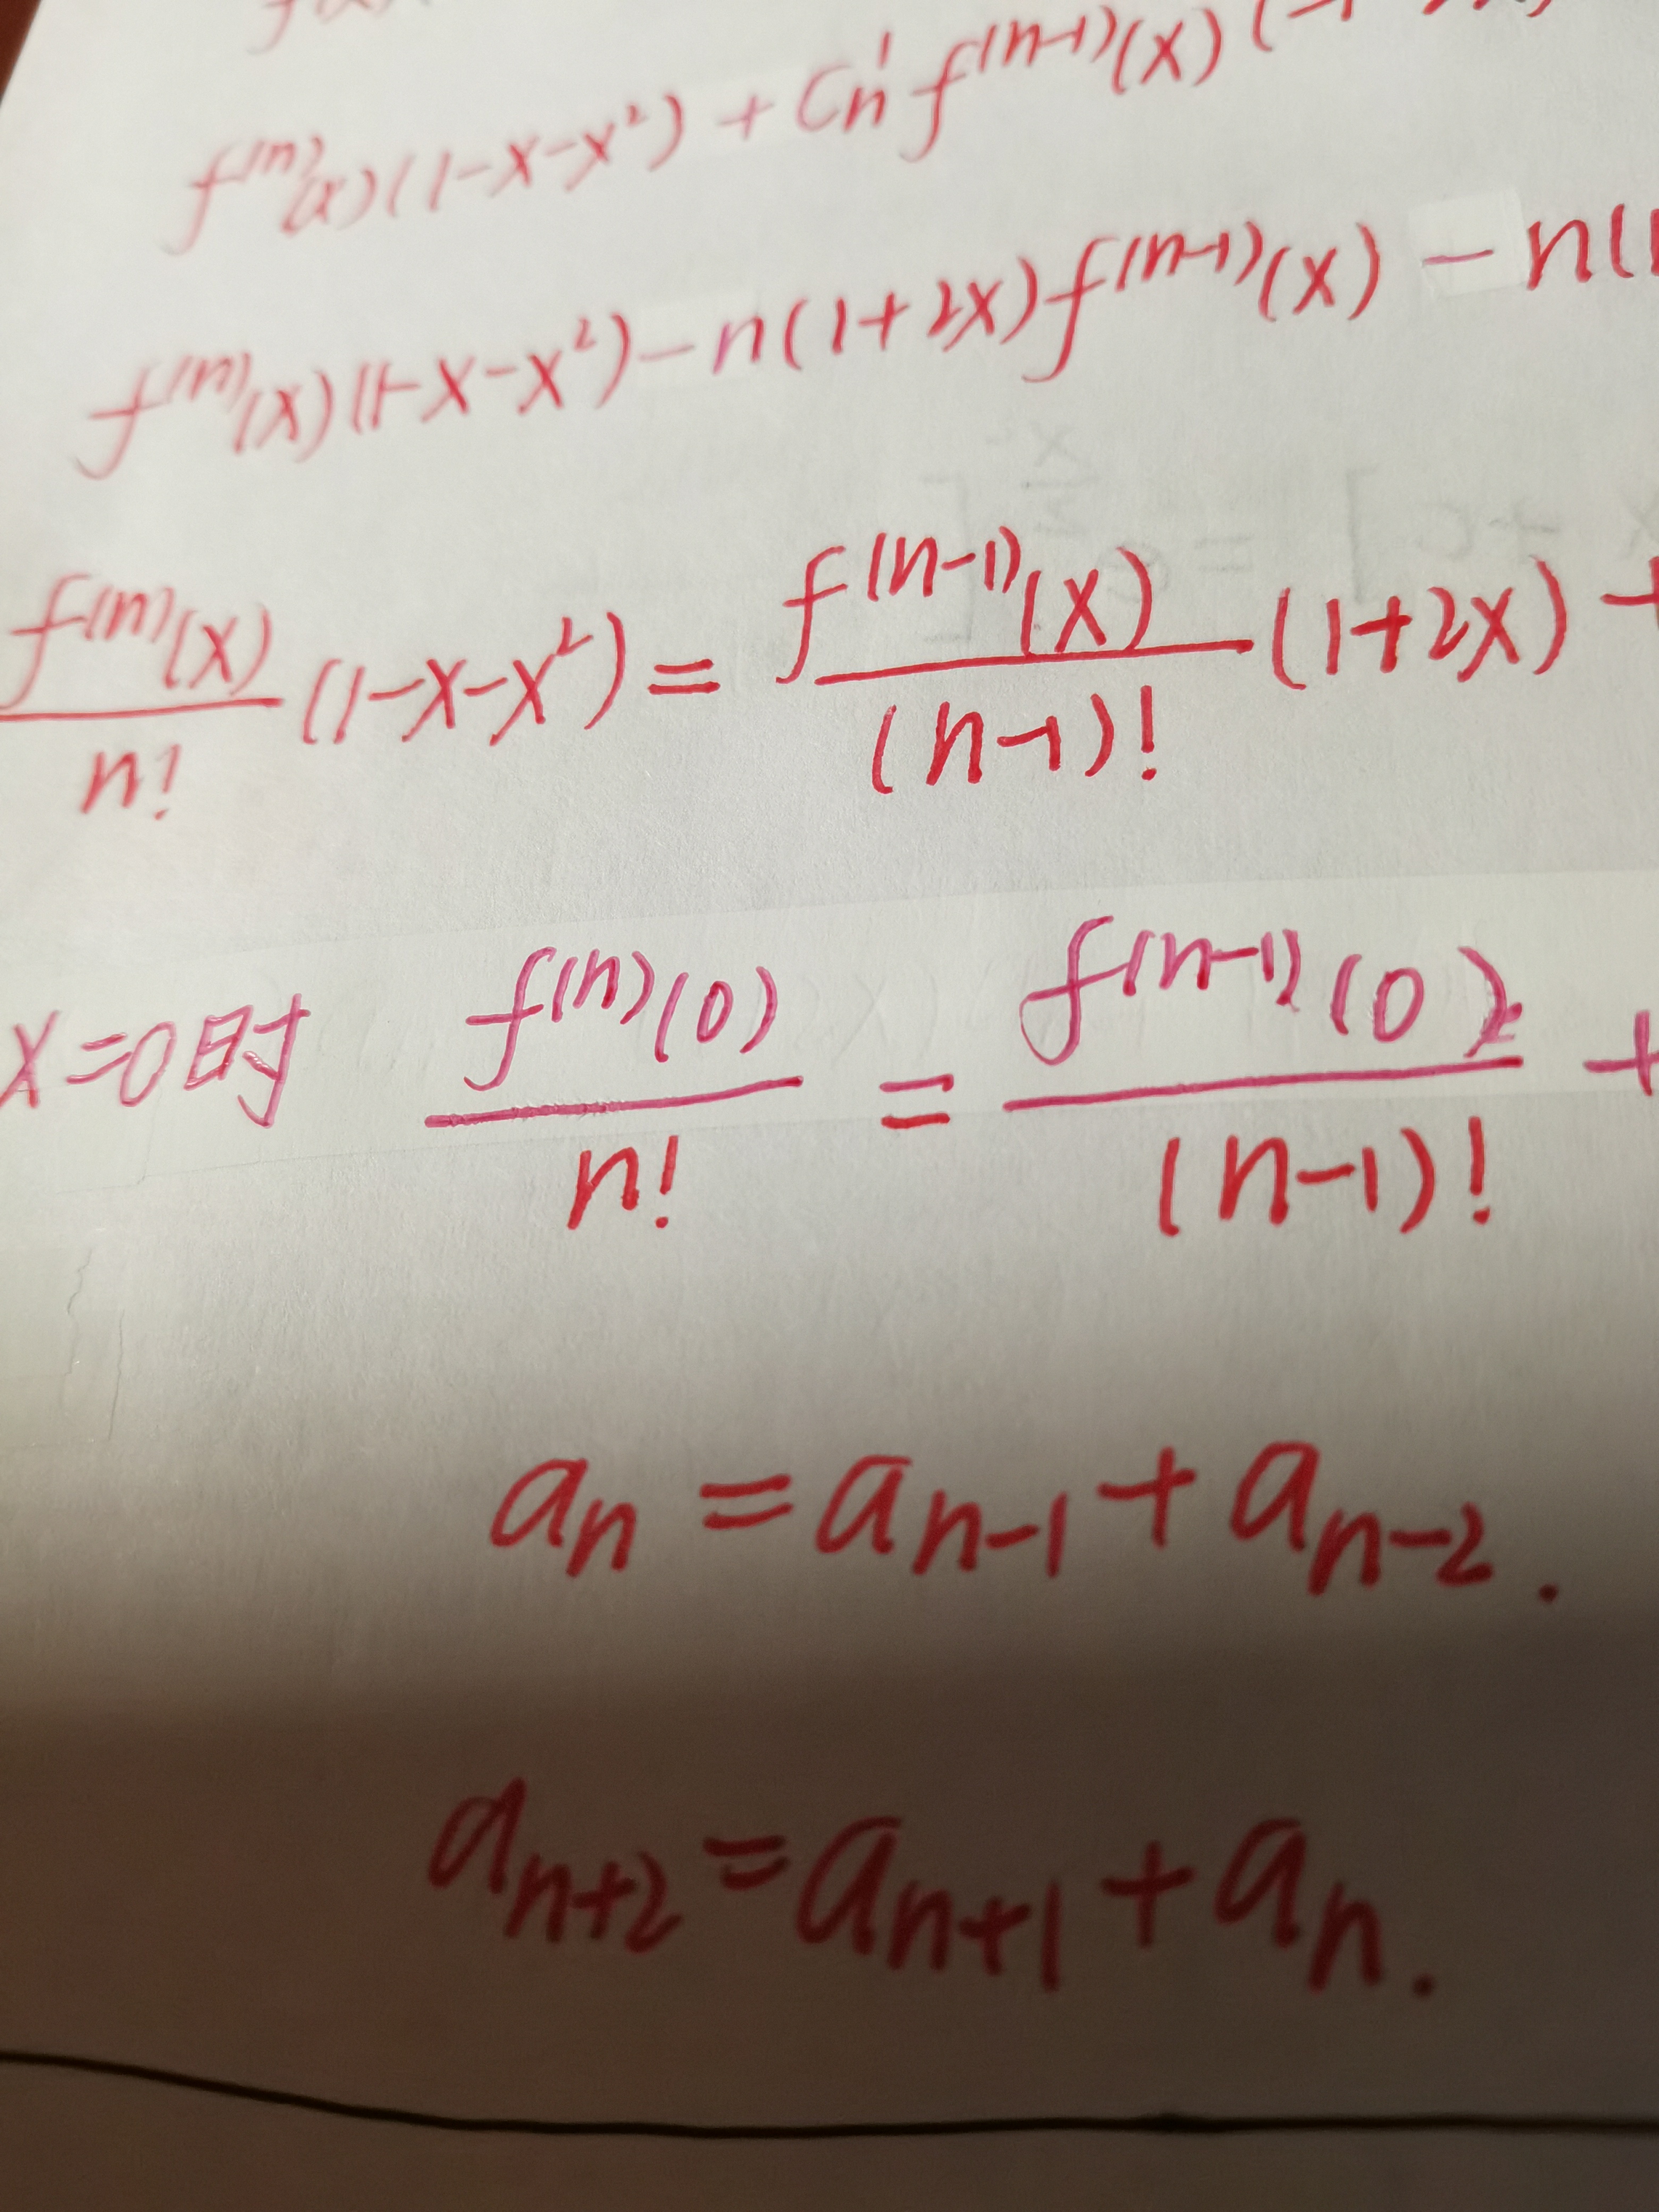 f⁽ⁿ⁾(x)(1-x-x²) + Cn¹ f⁽ⁿ⁻¹⁾(x)(-1
f⁽ⁿ⁾(x)(1-x-x²) - n(1+2x)f⁽ⁿ⁻¹⁾(x) - n(
f⁽ⁿ⁾(x)/n! (1-x-x²) = f⁽ⁿ⁻¹⁾(x)/(n-1)! (1+2x) +
x=0时 f⁽ⁿ⁾(0)/n! = f⁽ⁿ⁻¹⁾(0)/(n-1)! +
aₙ = aₙ₋₁ + aₙ₋₂.
aₙ₊₂ = aₙ₊₁ + aₙ.